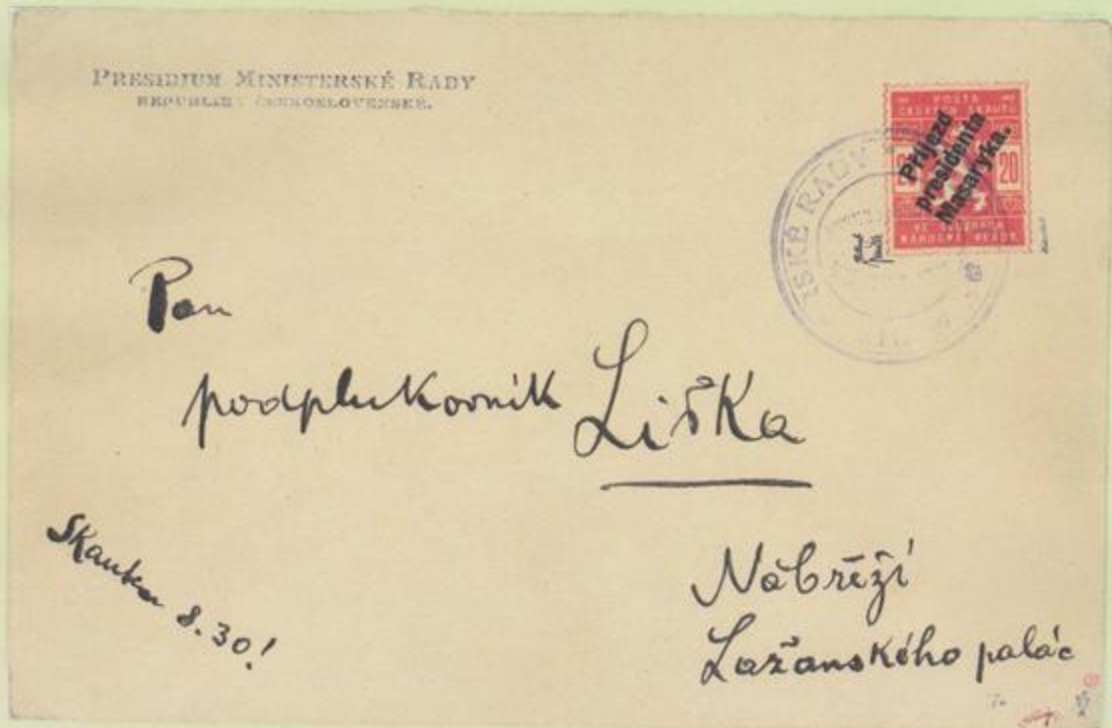 PRESIDIUM MINISTERSKÉ RADY
REPUBLIKY ČESKOSLOVENSKÉ.
POŠTA
ČESKÝCH SKAUTŮ
20
Příjezd
presidenta
Masaryka.
VE SLUŽBÁCH
NÁRODNÍ VLÁDY.
SKÉ RADY
11
Pan
podplukovník Liška
Skautem 8.30!
Nábřeží
Lažanského palác